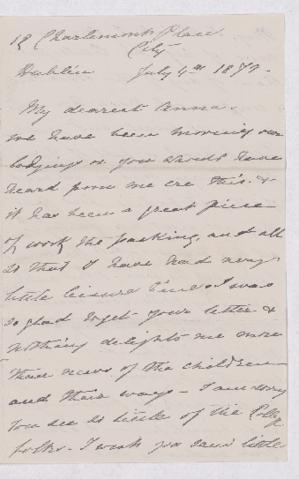 18 Charlemont Place
City
Dublin July 4th 187
My dearest Emma.
We have been moving our
lodgings or you would have
heard from me ere this. &
it has been a great piece
of work the packing, and all
so that I have had very
little leisure time. I was
so glad to get your letter &
nothing delights me more
than news of the children
and their ways - I am sorry
you see so little of the College
folks. I wish you saw little